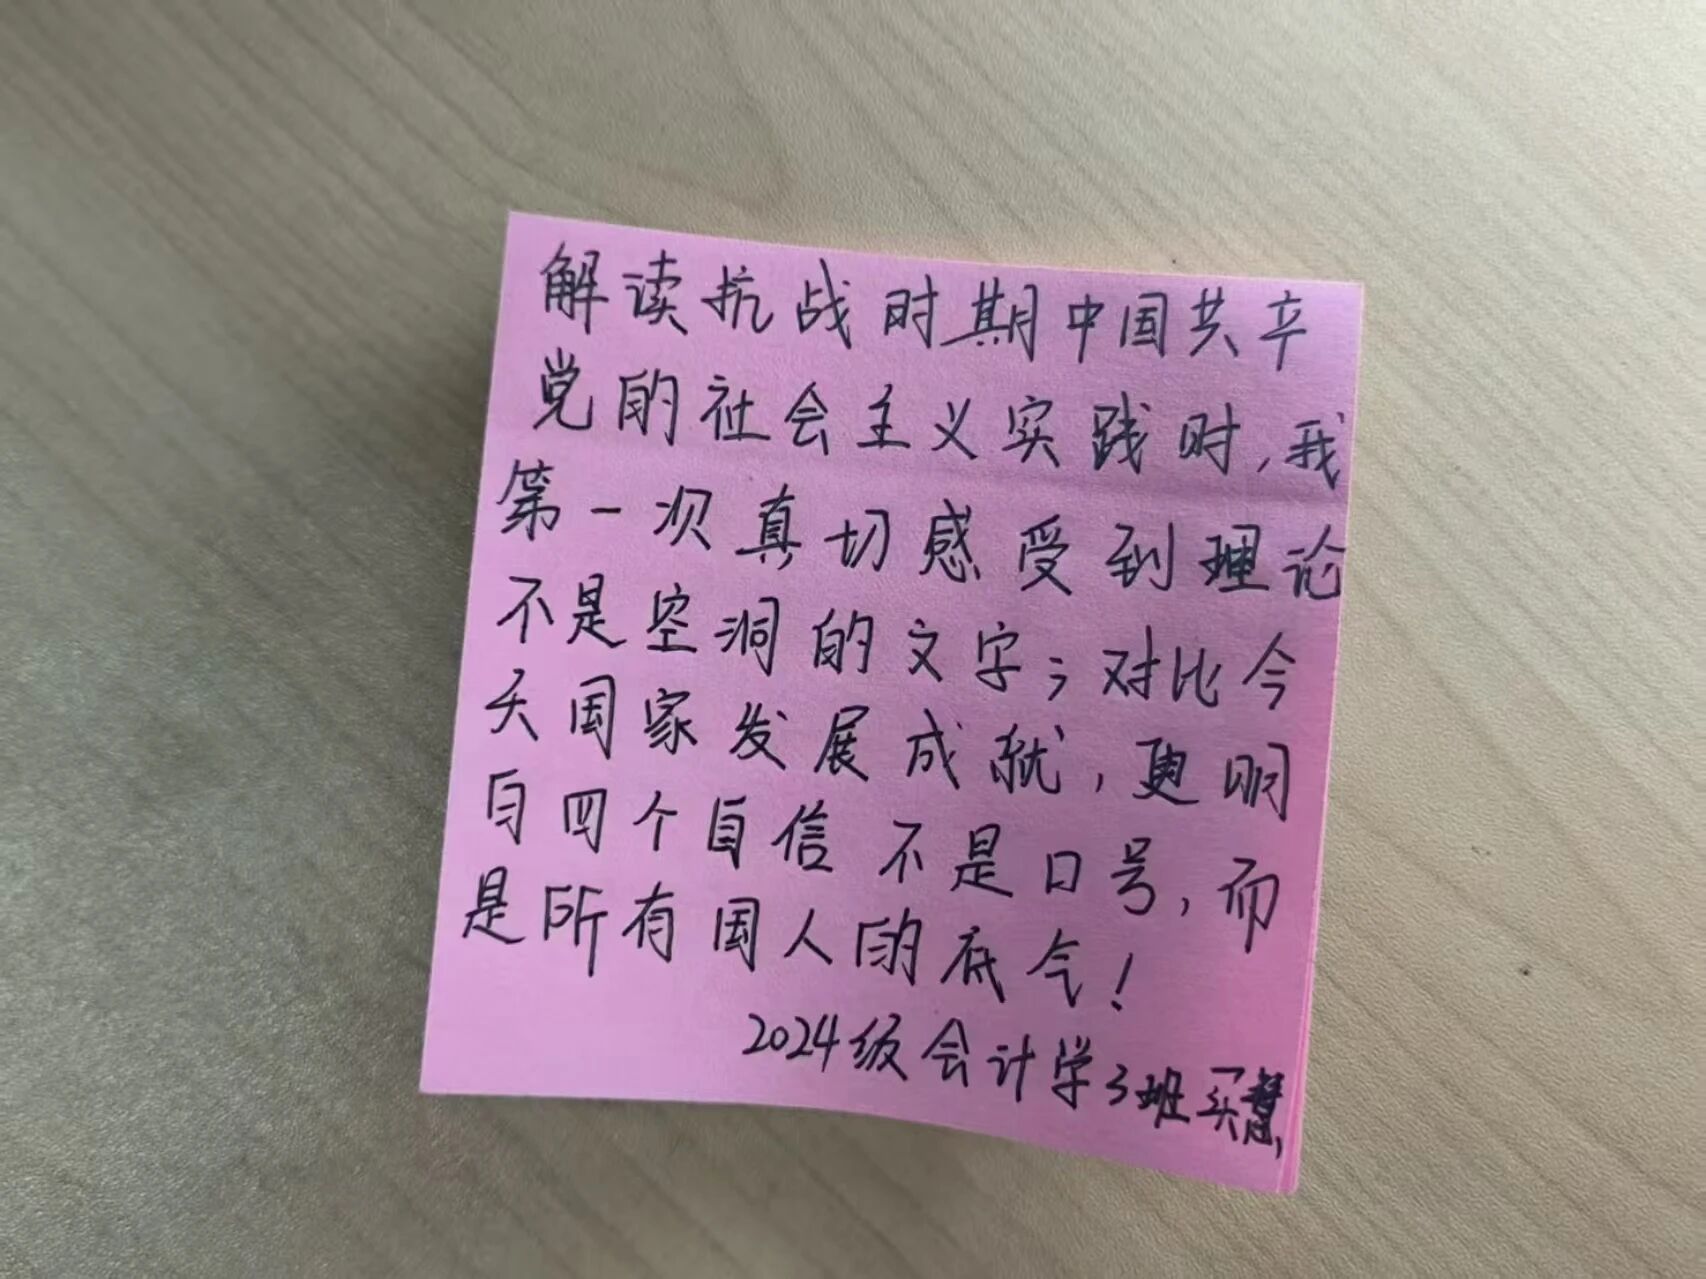 解读抗战时期中国共产
党的社会主义实践时,我
第一次真切感受到理论
不是空洞的文字;对比今
天国家发展成就,更明
白四个自信不是口号,而
是所有国人的底气!
2024级会计学3班买慧